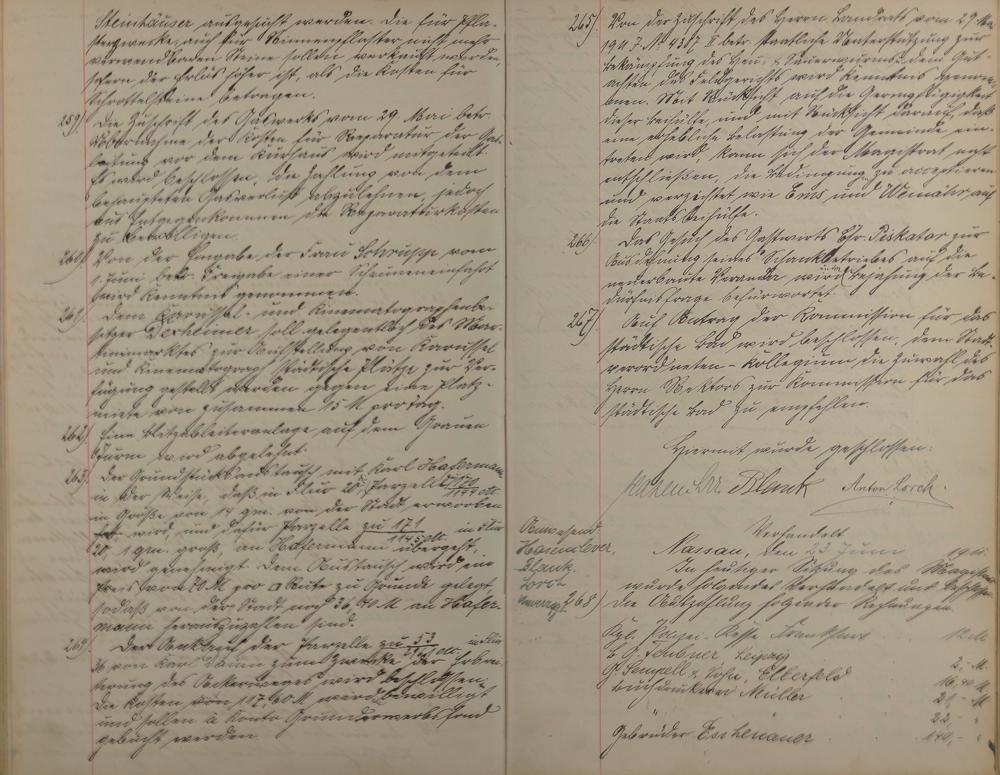 Steinhäuser ausgesucht werden. Die für Pfla-
sterzwecke, auch für Rinnenpflaster nicht mehr
verwendbaren Steine sollen verkauft werden,
sofern der Erlös höher ist, als die Kosten für
Schrottelsteine betragen.
259) Die Zuschrift des Gaswerks vom 29 Mai betr.
Übernahme der Kosten für Reparatur der Gas-
leitung vor dem Kurhaus wird mitgeteilt.
Es wird beschlossen, die Zahlung von dem
behaupteten Gasverlust abzulehnen, jedoch
aus Entgegenkommen die Reparaturkosten
zu bewilligen.
260) Von der Eingabe der Frau vom
1. Juni betr. Freigabe einer Scheuneneinfahrt
wird Kenntnis genommen.
261) Dem Karussel- und Kinematographenbe-
sitzer Dexheimer soll gelegentlich des Mar-
tinimarktes zur Aufstellung von Karussel
und Kinematograph städtische Plätze zur Ver-
fügung gestellt werden gegen eine Platz-
miete von zusammen 15 M pro Tag.
262) Eine Blitzableiteranlage auf dem Grauen
Turm wird abgelehnt.
263) Der Grundstücksaustausch mit Karl Hafermann
in der Weise, daß in Flur 20, Parzelle
in Größe von 14 qm. von der Stadt erworben
wird, und dafür Parzelle zu 171 in Flur
20, 1 qm. groß, an Hafermann übergeht,
wird genehmigt. Dem Austausch wird ein
Preis von 70 M pro Rute zu Grunde gelegt,
sodaß von der Stadt noch 36,40 M an Hafer-
mann herauszuzahlen sind.
264) Der Ankauf der Parzelle zu 53 in Flur
36 von Karl Daum zum Zwecke der Verbrei-
terung des Ackerweges wird beschlossen;
die Kosten von 117,60 M wird bewilligt
und sollen à Konto Grunderwerbsfond
gebucht werden.
265) Von der Zuschrift des Herrn Landrats vom 29 Mai
1911 J. No. 4307 II betr. staatliche Unterstützung zur
Bekämpfung des Heu- & Sauerwurms & dem Gut-
achten des Feldgerichts wird Kenntnis genom-
men. Mit Rücksicht auf die Geringfügigkeit
dieser Beihülfe und mit Rücksicht darauf, daß
eine erhebliche Belastung der Gemeinde ein-
treten wird, kann sich der Magistrat nicht
entschließen, die Bedingung zu acceptieren
und verzichtet wie Ems und Weinähr auf
die Staatsbeihülfe.
266) Das Gesuch des Gastwirts Chr. Piskator zur
Ausdehnung seines Schankbetriebes auf die
neuerbaute Veranda wird Bejahung der Be-
dürfnisfrage befürwortet.
267) Auf Antrag der Kommission für das
städtische Bad wird beschlossen, dem Stadt-
verordneten-Kollegium die Zuwahl des
Herrn Rektors zur Kommission für das
städtische Bad zu empfehlen.
Hiermit wurde geschlossen:
Blank Anton Lorch.
Verhandelt
Nassau, den 23 Juni 1911.
Anwesend
Hasenclever,
Blank,
Lorch
In heutiger Sitzung des Magistrats
wurde folgendes verhandelt und beschlossen
268) Die Auszahlung folgender Rechnungen
Kgl. Polizei-Kasse Frankfurt 12 M
B. G. Teubner, Leipzig 2,- M
& Sohn, Elberfeld 16,40 M
Buchdruckerei Müller 21,- M
" " 22,- "
Gebrüder Eschenauer 140,- "